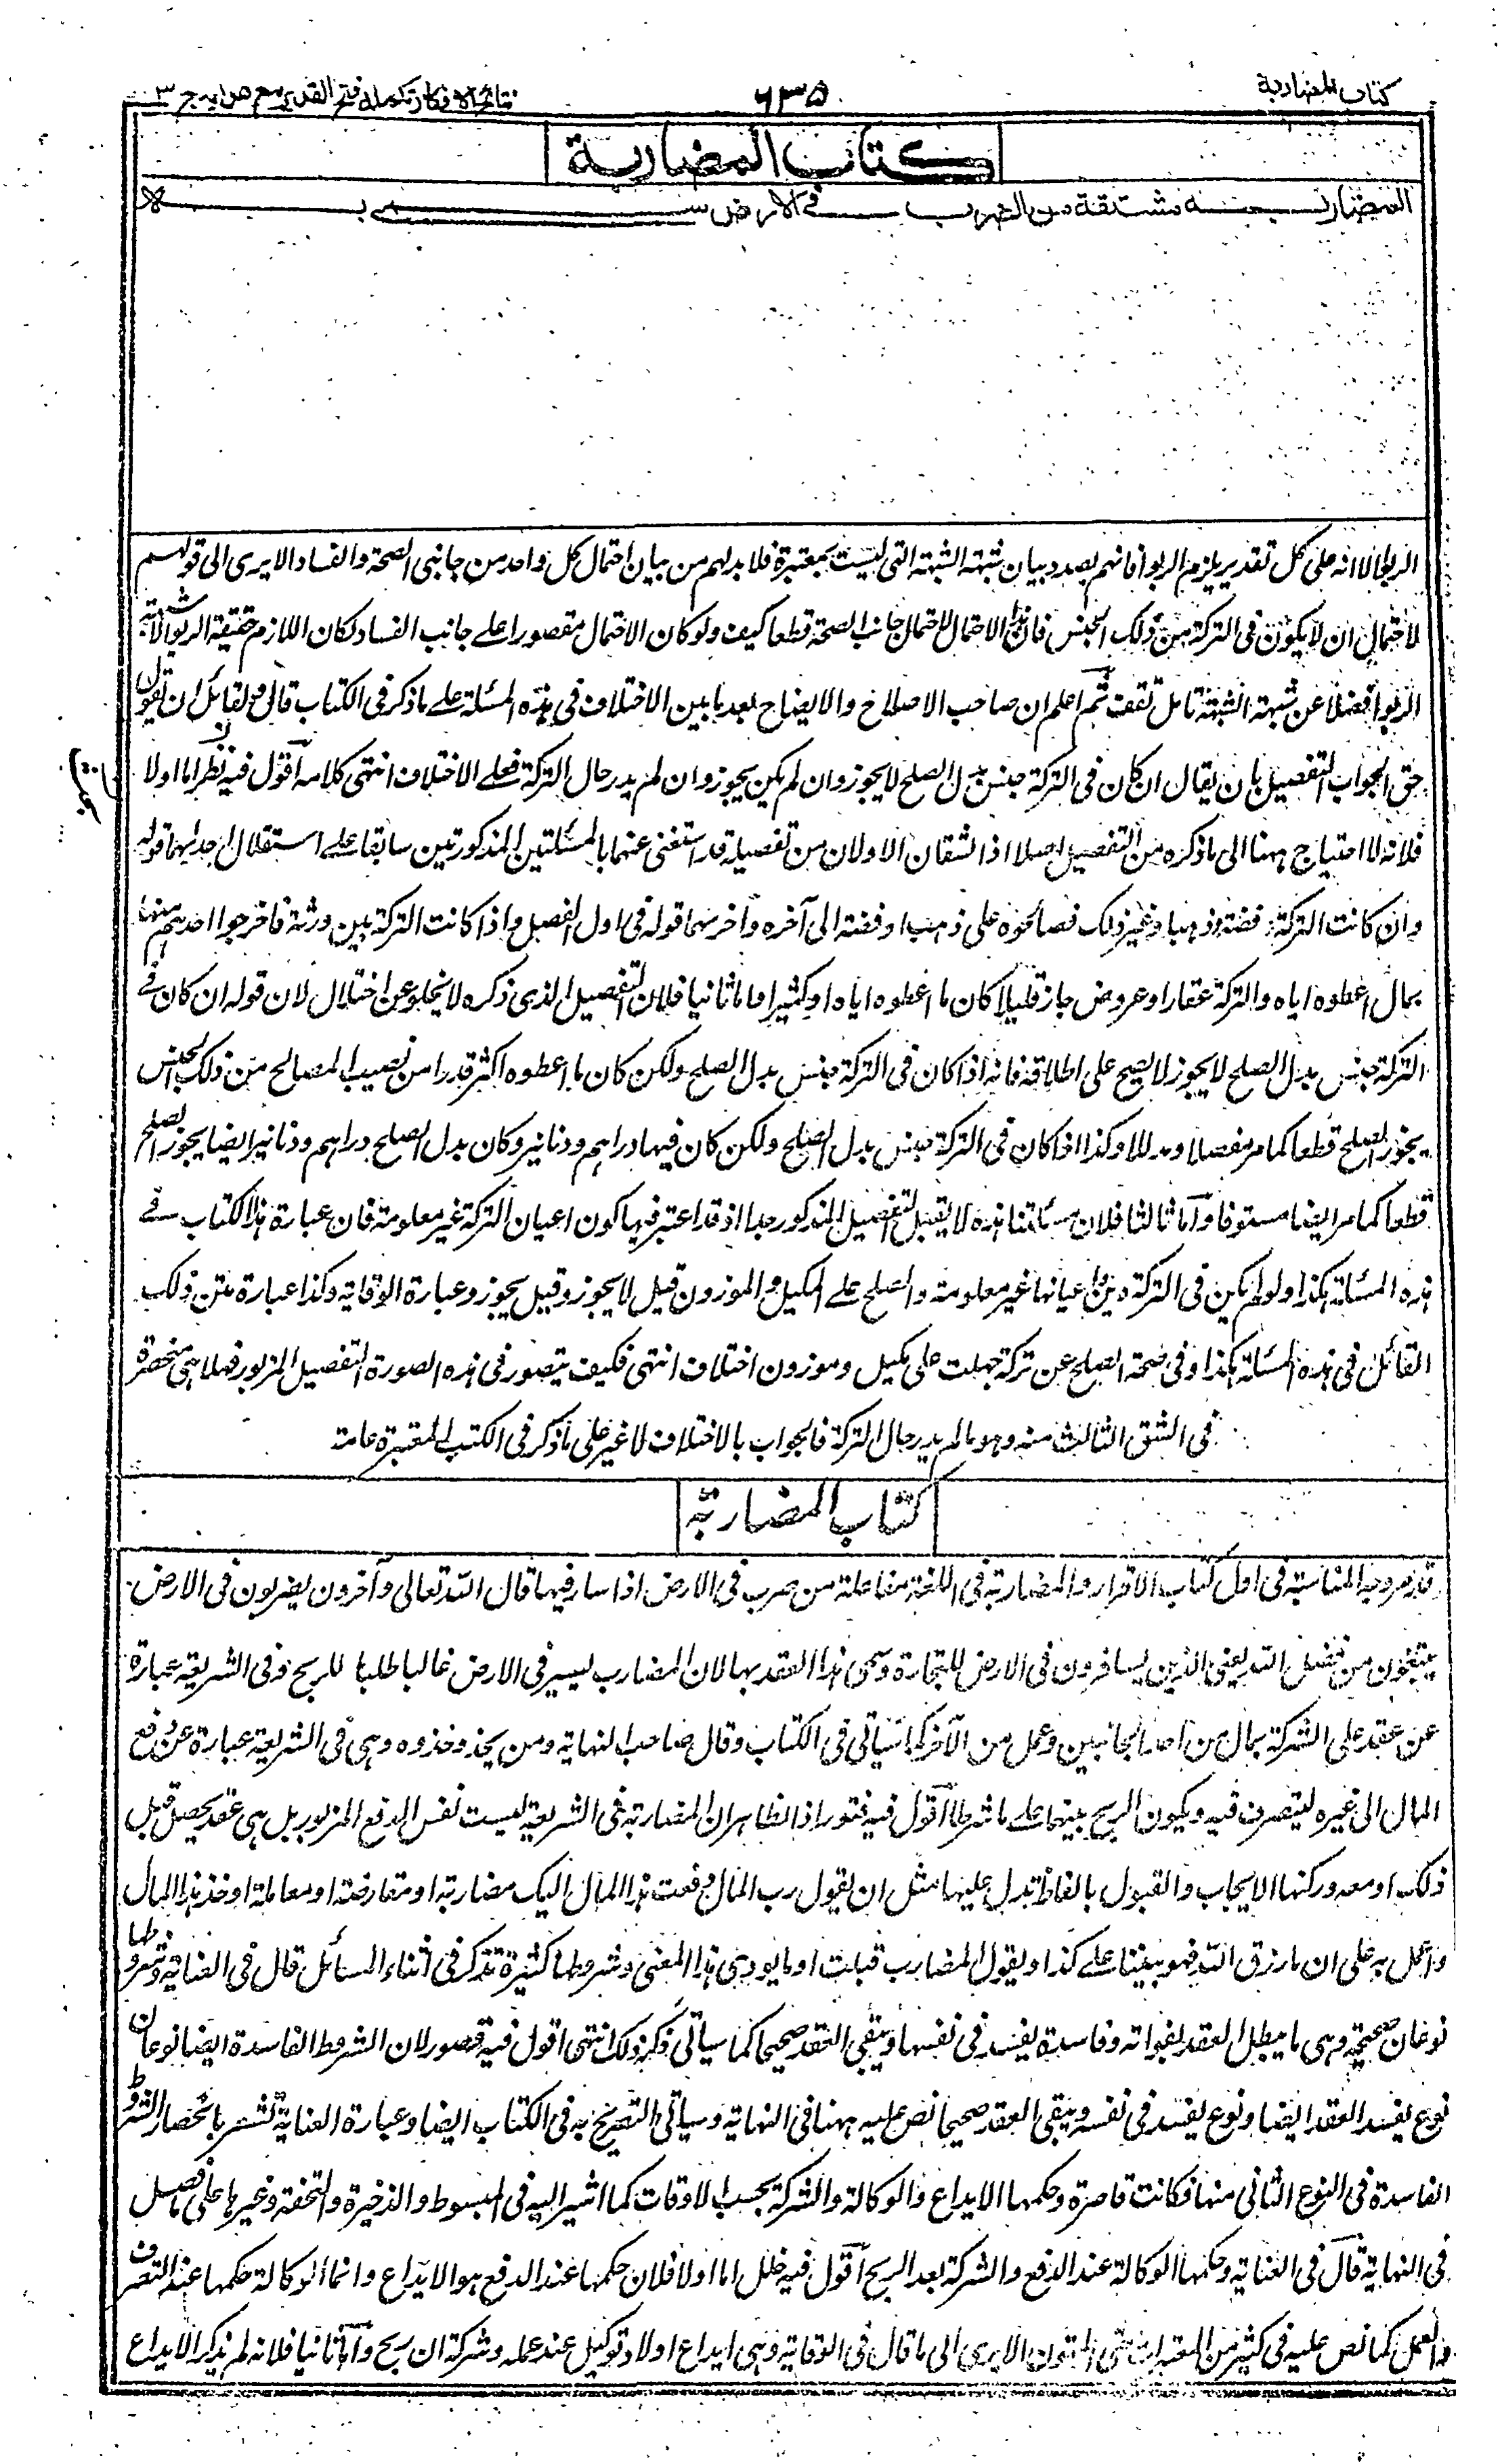 كتاب المضاربة
٦٣٥
نتائج الافكار تكمله فتح القدير مع هدايه ج ٣
كتاب المضاربة
المضاربة مشتقة من الضرب في الارض سمي به لا
الربوا الا انه على كل تقدير يلزم الربوا فانهم بصدد بيان شبهة الشبهة التى ليست بمعتبرة فلا بد لهم من بيان احتمال كل واحد من جانبى الصحة والفساد الا يرى الى قولهم
لاحتمال ان لا يكون فى التركة من ذلك الجنس فان هذا الاحتمال لاحتمال جانب الصحة قطعا كيف ولو كان الاحتمال مقصورا على جانب الفساد لكان اللازم حقيقة الربوا لا شبهة
الربوا فضلا عن شبهة الشبهة تامل تقف ثم اعلم ان صاحب الاصلاح والايضاح بعد ما بين الاختلاف فى هذه المسئلة على ما ذكر فى الكتاب قال ولقائل ان يقول
حق الجواب التفصيل بان يقال ان كان فى التركة جنس بدل الصلح لا يجوز وان لم يكن يجوز وان لم يدر حال التركة فعلى الاختلاف انتهى كلامه اقول فيه نظر اما اولا
فلانه لا احتياج ههنا الى ما ذكره من التفصيل اصلا اذ الشقان الاولان من تفصيله قد استغنى عنهما بالمسئلتين المذكورتين سابقا على استقلال احديهما قوله
وان كانت التركة فضة وذهبا وغير ذلك فصالحوه على ذهب او فضة الى آخره واخرىهما قوله فى اول الفصل واذا كانت التركة بين ورثة فاخرجوا احدهم منها
بمال اعطوه اياه والتركة عقار او عروض جاز قليلا كان ما اعطوه اياه او كثيرا واما ثانيا فلان التفصيل الذى ذكره لا يخلو عن اختلال لان قوله ان كان فى
التركة جنس بدل الصلح لا يجوز لا يصح على اطلاقه فانه اذا كان فى التركة جنس بدل الصلح ولكن كان ما اعطوه اكثر قدرا من نصيب المصالح من ذلك الجنس
يجوز الصلح قطعا كما مر مفصلا ومدللا وكذا اذا كان فى التركة جنس بدل الصلح ولكن كان فيها دراهم ودنانير وكان بدل الصلح دراهم ودنانير ايضا يجوز الصلح
قطعا كما مر ايضا مستوفا واما ثالثا فلان مسئلتنا هذه لا يقبل التفصيل المذكور جدا اذ قد اعتبر فيها كون اعيان التركة غير معلومة فان عبارة هذا الكتاب فى
هذه المسئلة هكذا ولو لم يكن فى التركة دين واعيانها غير معلومة والصلح على المكيل والموزون قيل لا يجوز وقيل يجوز وعبارة الوقاية وكذا عبارة متن ذلك
القائل فى هذه المسئلة هكذا وفى صحة الصلح عن تركة جهلت على مكيل وموزون اختلاف انتهى فكيف يتصور فى هذه الصورة التفصيل المزبور فصلا هى منحصرة
فى الشق الثالث منه وهو ما لم يدر حال التركة فالجواب بالاختلاف لا غير على ما ذكر فى الكتب المعتبرة عامة
كتاب المضاربة
قد مر وجه المناسبة فى اول كتاب الاقرار والمضاربة فى اللغة مفاعلة من ضرب فى الارض اذا سار فيها قال الله تعالى وآخرون يضربون فى الارض
يبتغون من فضل الله يعنى الذين يسافرون فى الارض للتجارة وسمى هذا العقد بها لان المضارب يسير فى الارض غالبا طلبا للربح وفى الشريعة عبارة
عن عقد على الشركة بمال من احد الجانبين وعمل من الآخر كما سياتى فى الكتاب وقال صاحب النهاية ومن يحذو حذوه وهى فى الشريعة عبارة عن دفع
المال الى غيره ليتصرف فيه ويكون الربح بينهما على ما شرطا اقول فيه فتور اذ الظاهر ان المضاربة فى الشريعة ليست نفس الدفع المزبور بل هى عقد يحصل قبل
ذلك او معه وركنها الايجاب والقبول بالفاظ تدل عليها مثل ان يقول رب المال دفعت هذا المال اليك مضاربة او مقارضة او معاملة او خذ هذا المال
واعمل به على ان ما رزق الله فهو بيننا على كذا ويقول المضارب قبلت او ما يودى هذا المعنى وشروطها كثيرة تذكر فى اثناء المسائل قال فى العناية وشروطها
نوعان صحيحة وهى ما يبطل العقد بفواته وفاسدة يفسد فى نفسها ويبقى العقد صحيحا كما سياتى ذكر ذلك انتهى اقول فيه قصور لان الشروط الفاسدة ايضا نوعان
نوع يفسد العقد ايضا ونوع يفسد فى نفسه ويبقى العقد صحيحا نص عليه ههنا فى النهاية وسياتى التصريح به فى الكتاب ايضا وعبارة العناية تشعر بانحصار الشروط
الفاسدة فى النوع الثانى منها فكانت قاصرة وحكمها الايداع والوكالة والشركة بحسب الاوقات كما اشير اليه فى المبسوط والذخيرة والتحفة وغيرها على ما فصل
فى النهاية قال فى العناية وحكمها الوكالة عند الدفع والشركة بعد الربح اقول فيه خلل اما اولا فلان حكمها عند الدفع هو الايداع وانما الوكالة حكمها عند التصرف
والعمل كما نص عليه فى كثير من المعتبرات حتى المتون الا يرى الى ما قال فى الوقاية وهى ايداع اولا وتوكيل عند عمله وشركة ان ربح واما ثانيا فلانه لم يذكر الايداع